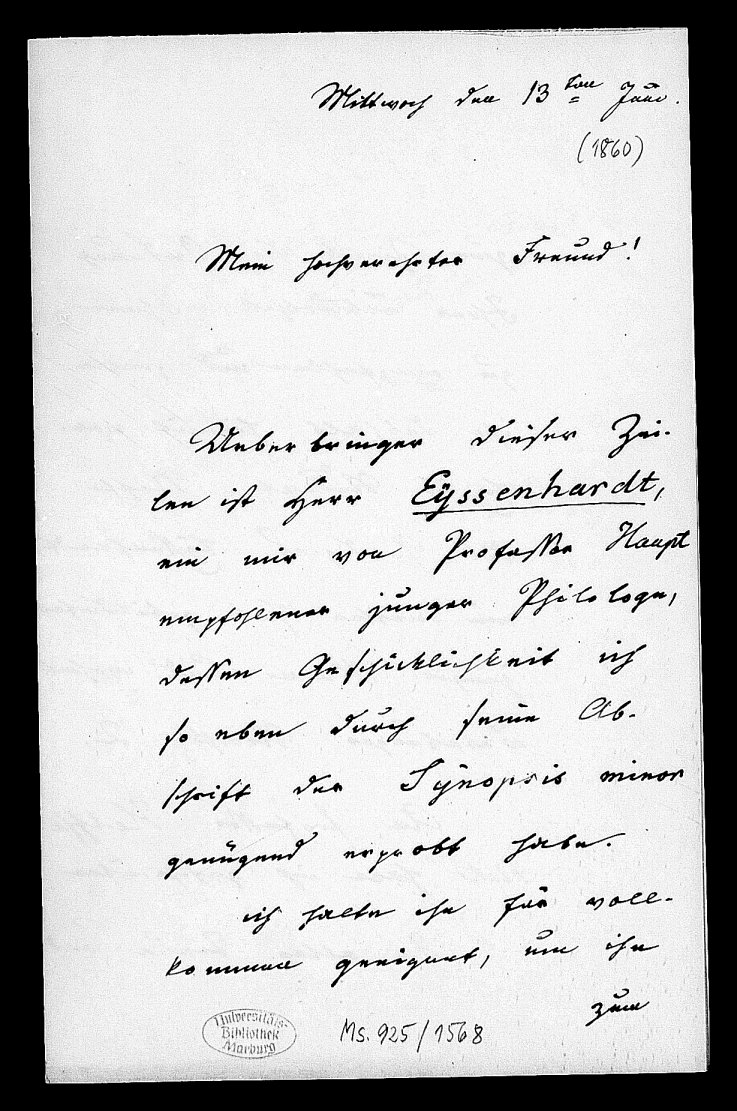 Mittwoch den 13ten Juni.
(1860)
Mein hochverehrter Freund!
Ueberbringer dieser Zei-
len ist Herr Eÿssenhardt,
ein mir von Professor Haupt
empfohlener junger Philologe,
dessen Geschicklichkeit ich
so eben durch seine Ab-
schrift der Sÿnopsis minor
genügend erprobt habe.
ich halte ihn für voll-
kommen geeignet, um ihn
zum
Universitäts-
Bibliothek
Marburg
Ms. 925/1568